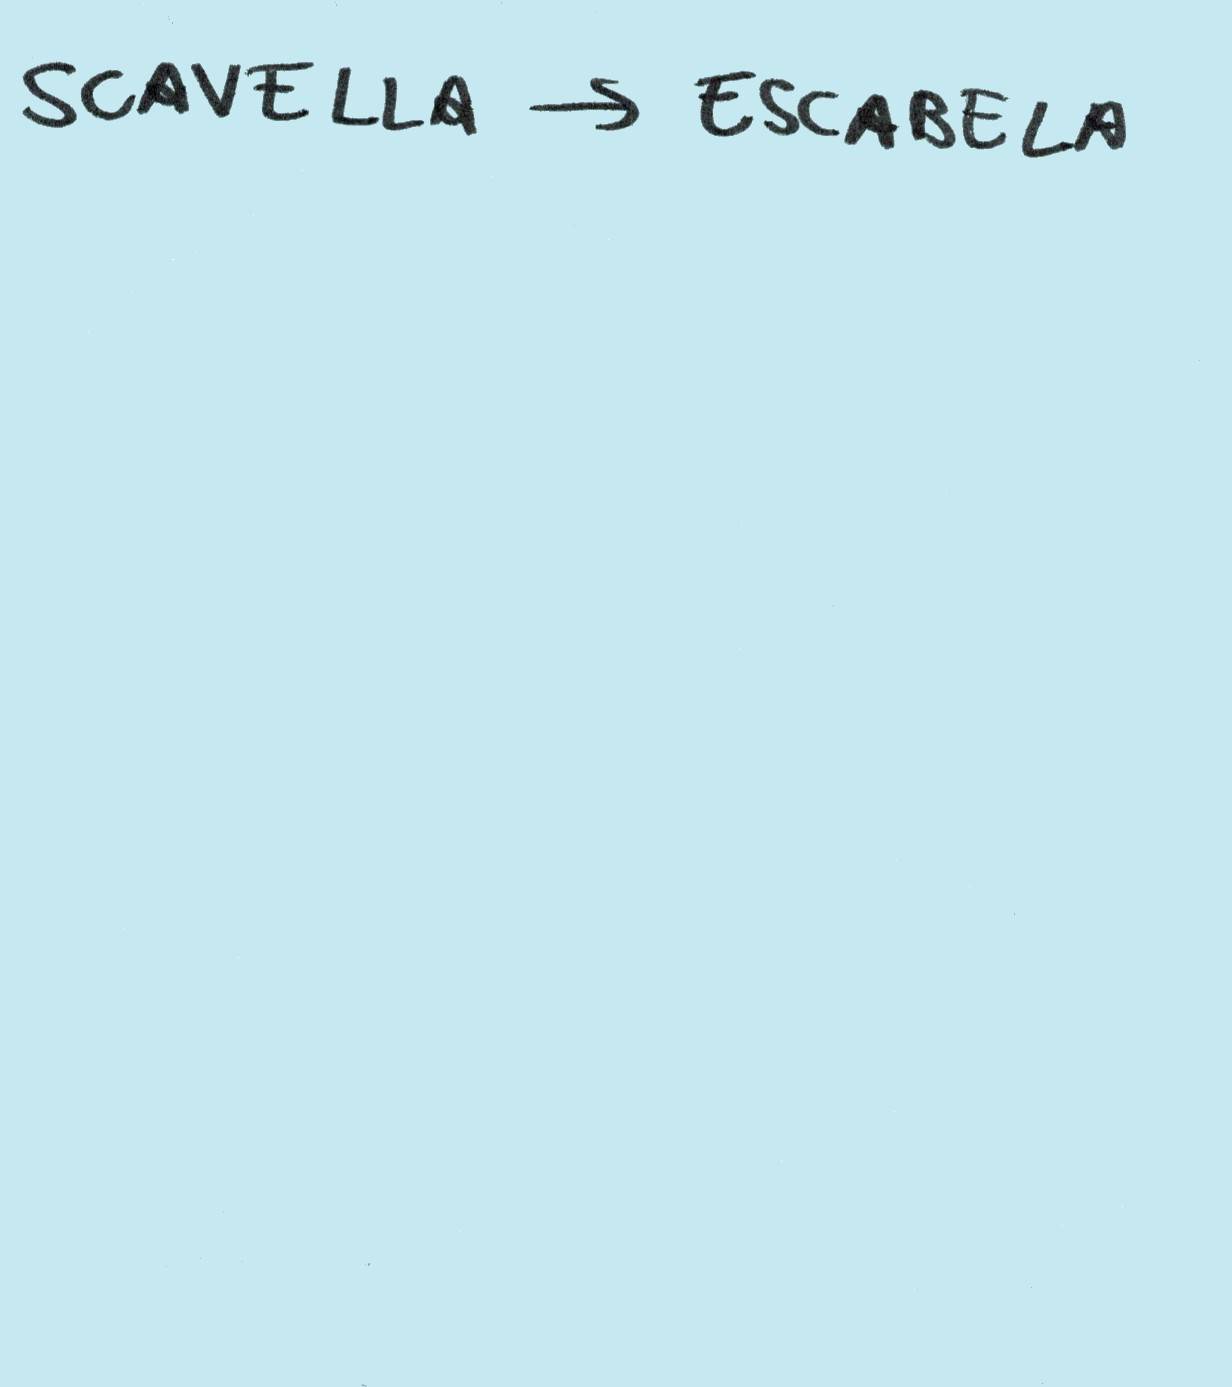 SCAVELLA → ESCABELA